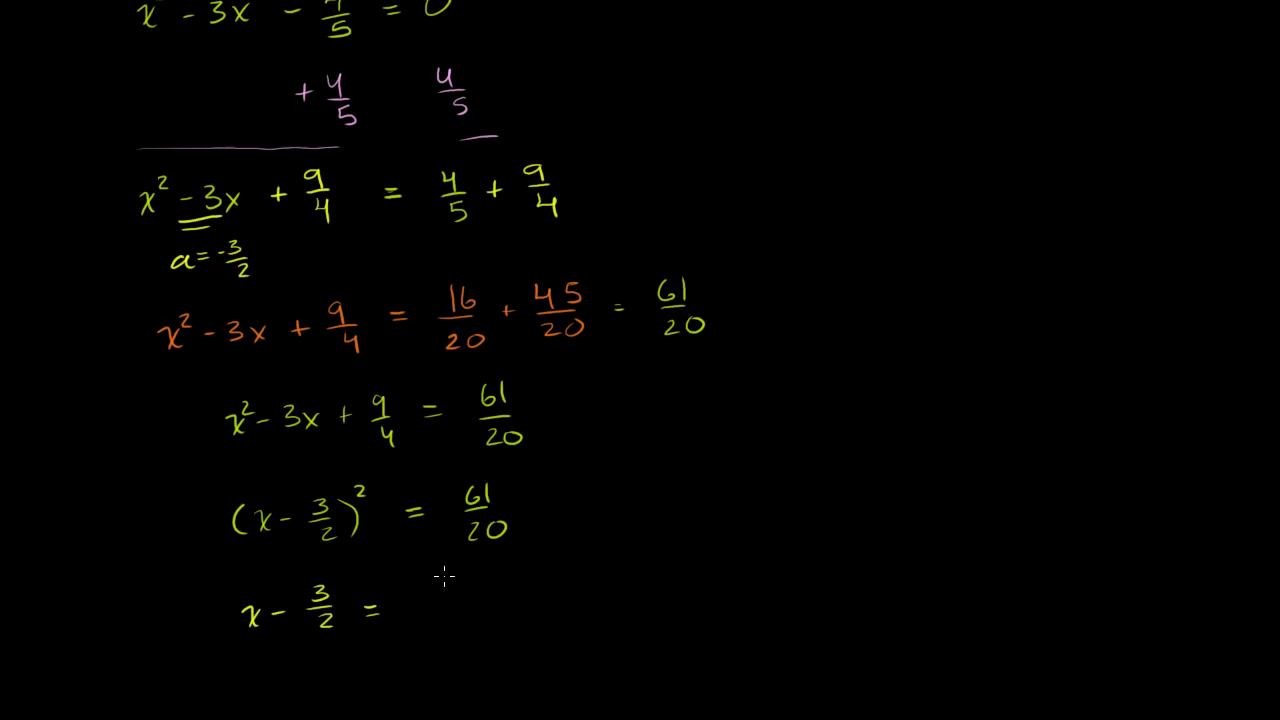 x² - 3x - 4/5 = 0
+ 4/5 4/5
x² - 3x + 9/4 = 4/5 + 9/4
a = -3/2
x² - 3x + 9/4 = 16/20 + 45/20 = 61/20
x² - 3x + 9/4 = 61/20
(x - 3/2)² = 61/20
x - 3/2 =